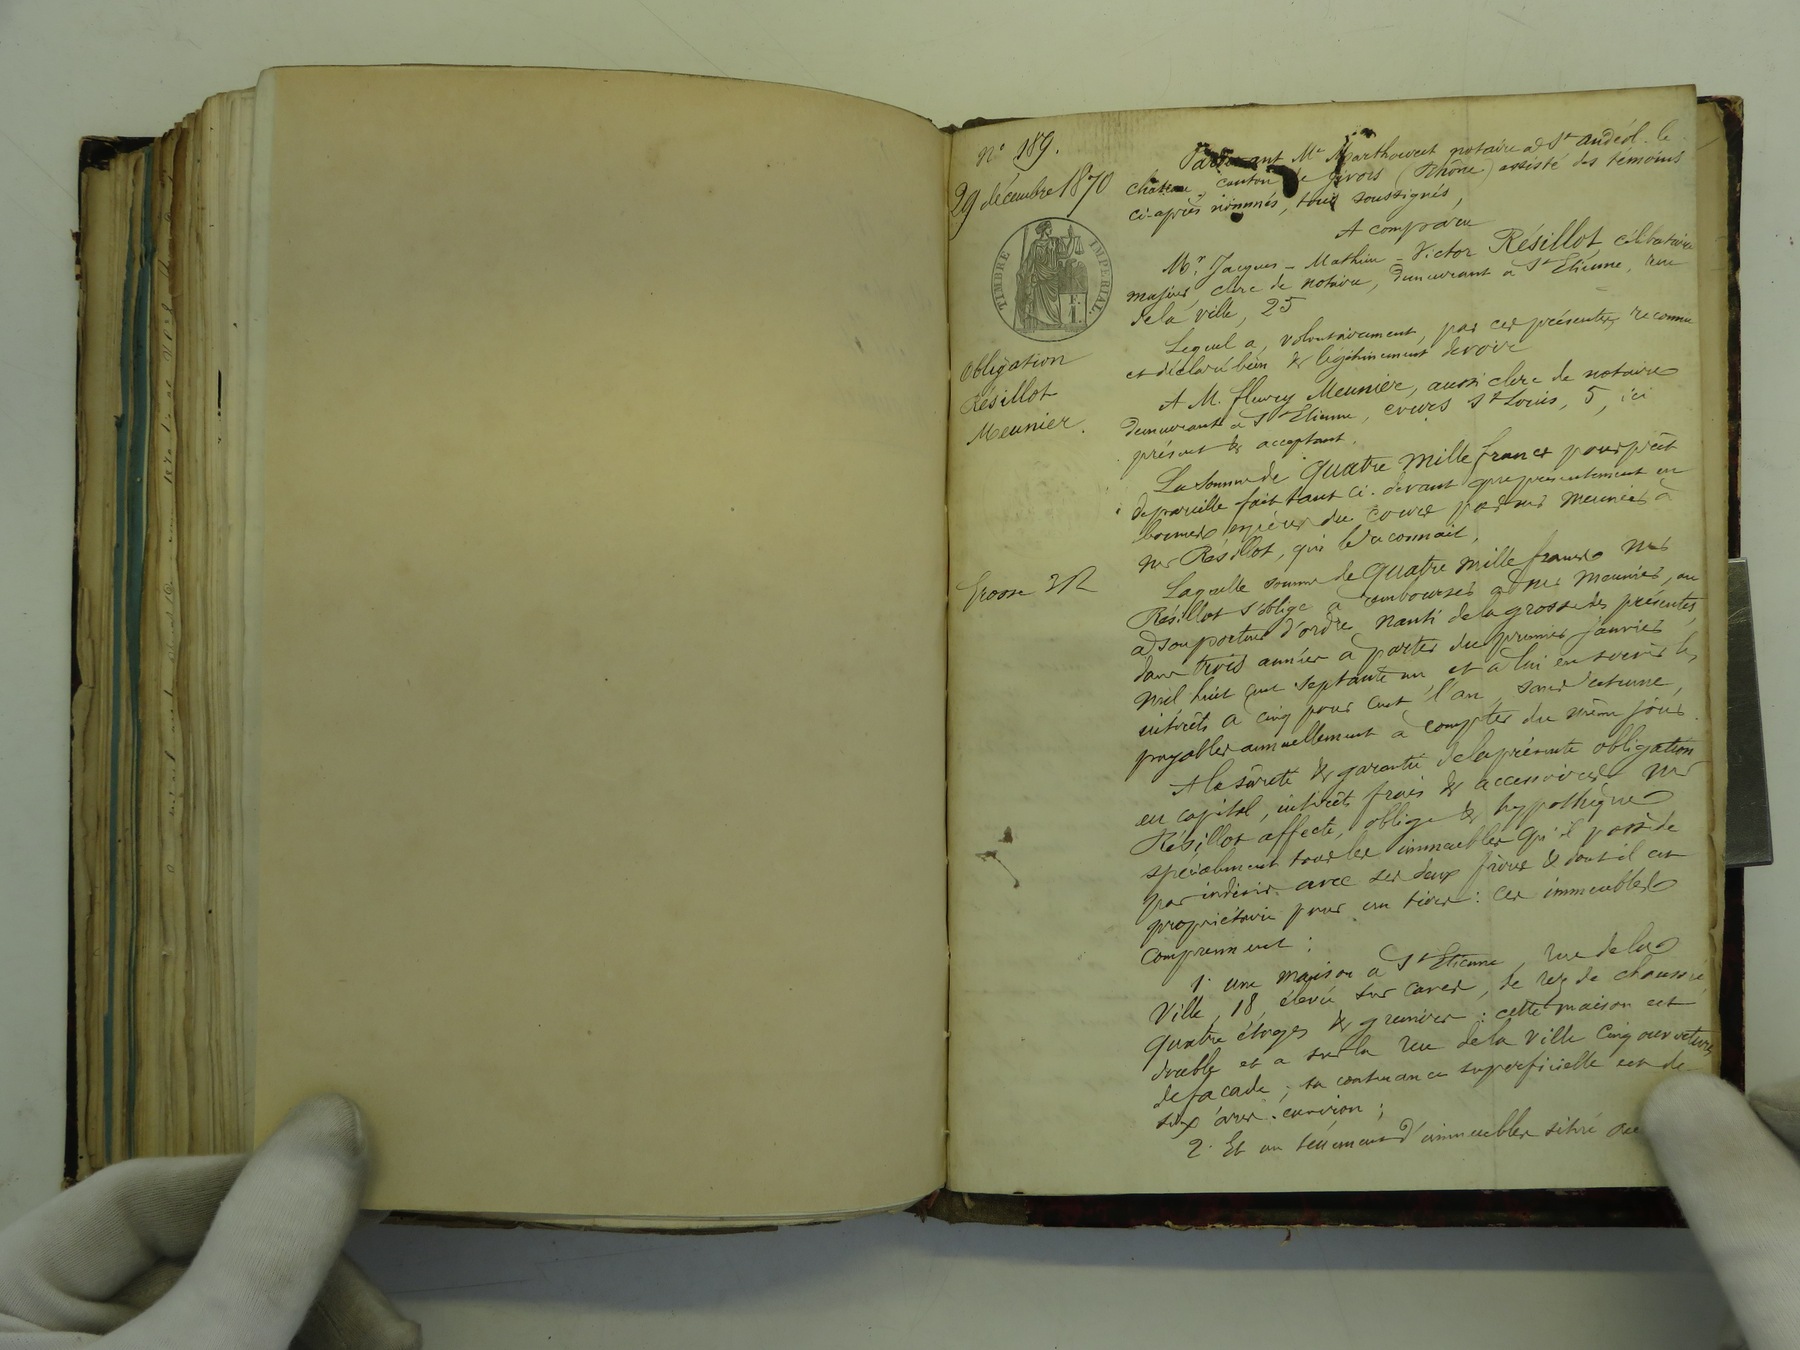 n° 189.
29 décembre 1870
TIMBRE IMPERIAL.
Obligation
Résillot
Meunier.
Grosse
Pardevant Me Marthouret notaire à St andéol-le
château, canton de givors (Rhône) assisté des témoins
ci-après nommés, tous soussignés,
A comparu
Mr. Jacques-Mathieu-Victor Résillot, célibataire
majeur, clerc de notaire, demeurant à St Etienne, rue
de la ville, 25
Lequel a, volontairement, par ces présentes, reconnu
et déclaré bien & légitimement devoir
A M. fleury Meunier, aussi clerc de notaire
demeurant à St Etienne, cours St Louis, 5, ici
présent & acceptant.
La somme de Quatre mille francs pour prêt
de pareille fait tant ci-devant que présentement en
bonnes espèces du cours par mr meunier à
mr Résillot, qui le reconnait,
Laquelle somme de Quatre mille francs mr
Résillot s'oblige à rembourser à mr meunier, ou
à son porteur d'ordre nanti de la grosse des présentes,
dans trois années à partir du premier janvier
mil huit cent septante un et à lui en servir les
intérêts à cinq pour cent l'an, sans retenue,
payables annuellement à compter du même jour.
A la sûreté & garantie de la présente obligation
en capital, intérêts frais & accessoires mr
Résillot affecte, oblige & hypothèque
spécialement tous les immeubles qu'il possède
par indivis avec ses deux frères & dont il est
propriétaire pour un tiers : ces immeubles
comprennent :
1° une maison à St Etienne, rue de la
Ville, 18, élevée sur caves, de rez de chaussée
quatre étages & greniers : cette maison est
double et a sur la rue de la Ville cinq ouvertures
de façade, sa contenance superficielle est de
six ares environ ;
2° Et un tènement d'immeubles situé au